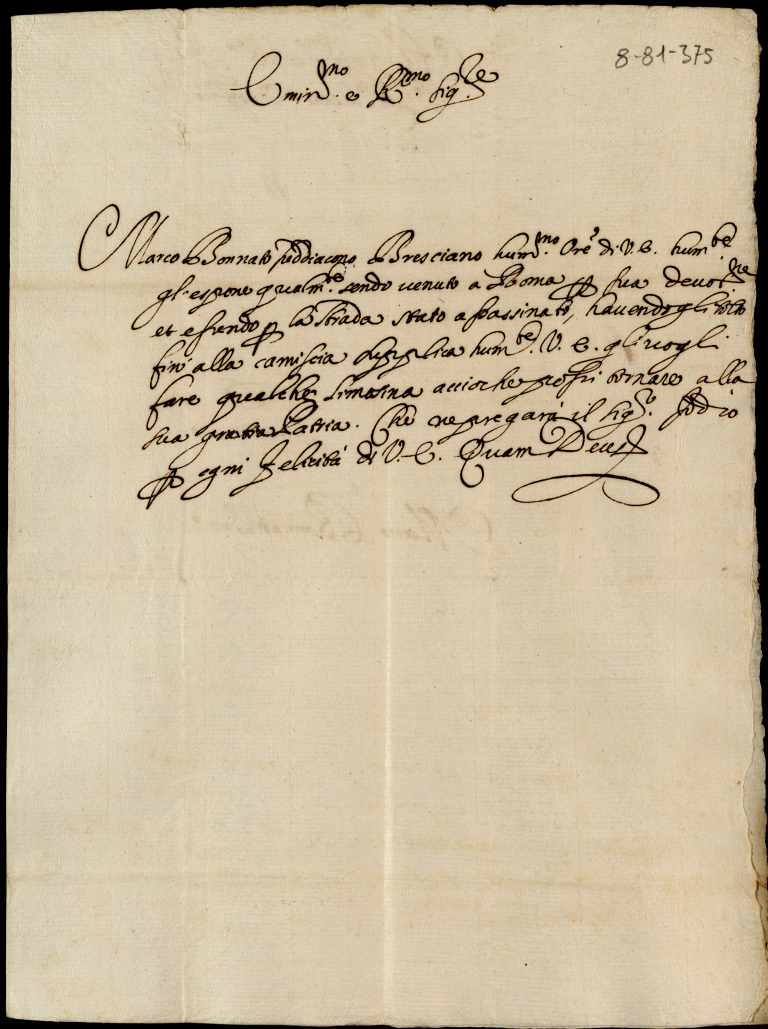 8-81-375
Emin.mo e R.mo sig.re
Marco Bonnato soddiacono Bresciano hum.mo Ore. di V. E. hum.te
gl'espone qualm.te sendo venuto a Roma p sua devot.ne
et essendo p la strada stato assassinato, havendogli tolto
fin' alla camiscia supplica hum.te V. E. gli vogli
fare qualche limosina accioche possi tornare alla
sua Patria. Che ne pregarà il sig.re Iddio
p ogni felicità di V. E. Quam Deus